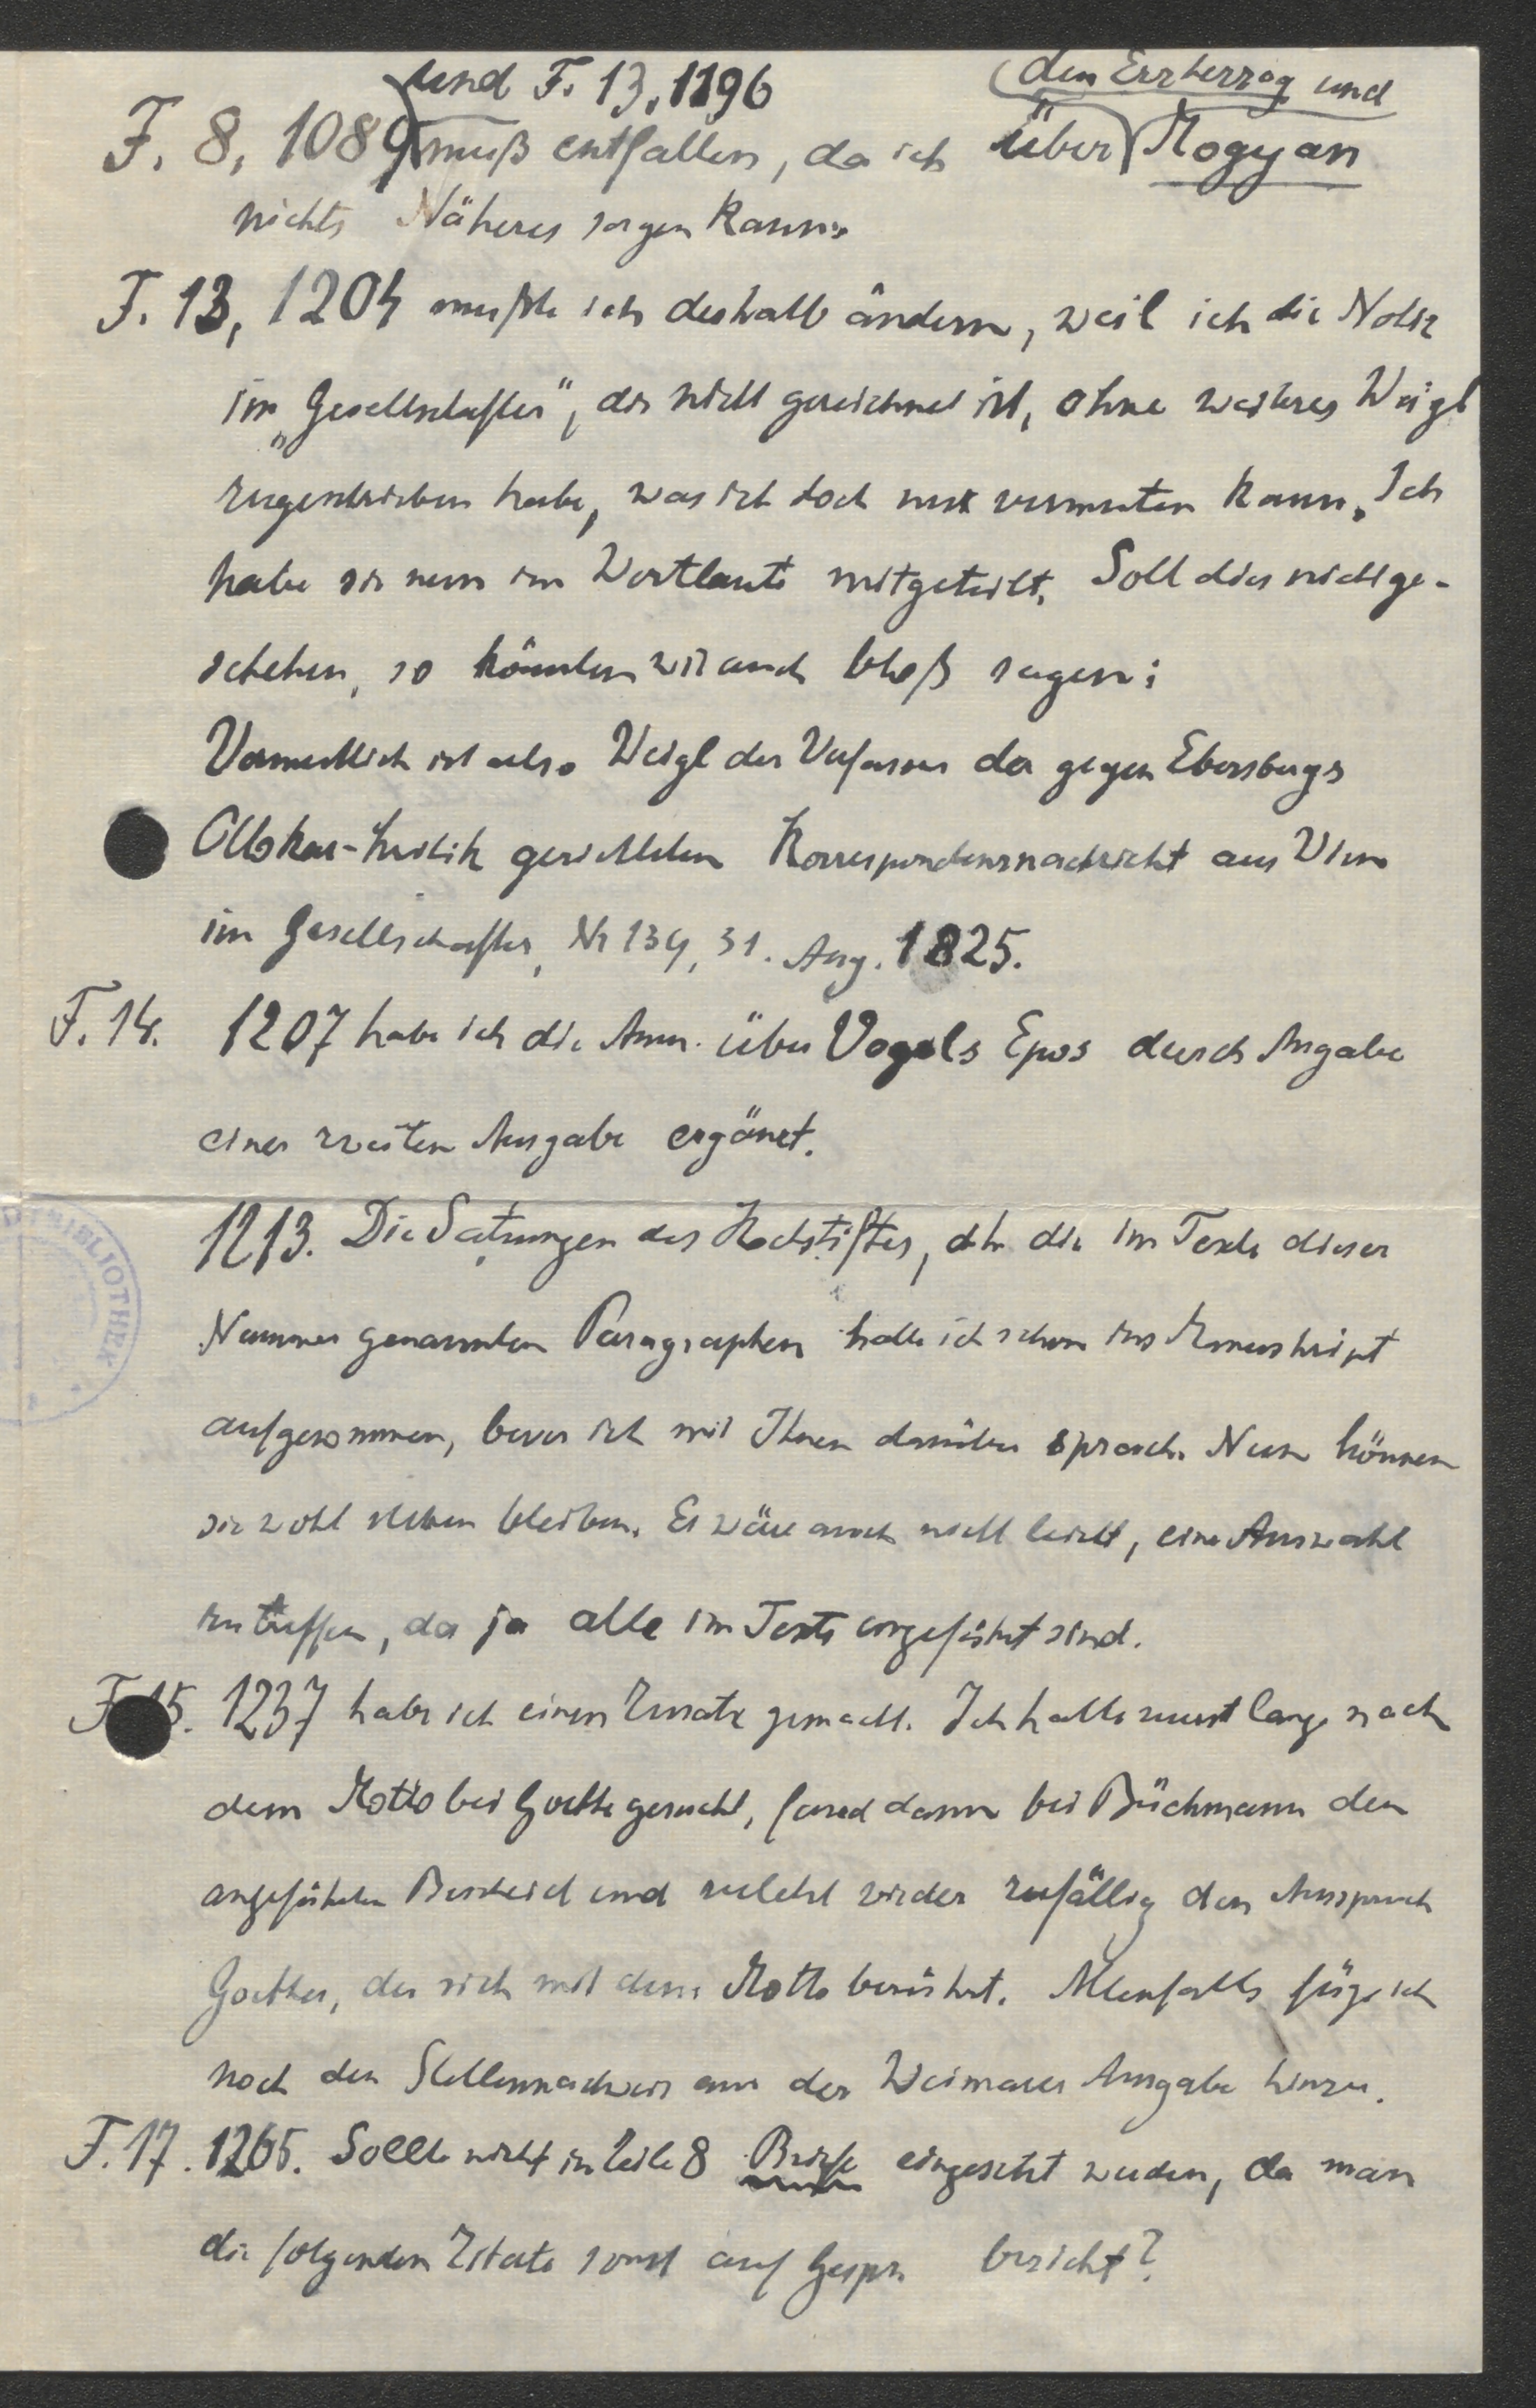 und F. 13, 1196
den Erzherzog und
F. 8, 1089 muß entfallen, da ich über Mogyan
nichts Näheres sagen kann.
F. 13, 1204 mußte ich deshalb ändern, weil ich die Notiz
im „Gesellschafter“, die nicht gezeichnet ist, ohne weiteres Weigl
zugeschrieben habe, was ich doch nur vermuten kann. Ich
habe sie nun im Wortlaute mitgeteilt. Soll dies nicht ge-
schehen, so könnten wir auch bloß sagen:
Vermutlich ist also Weigl der Verfasser der gegen Ebersbergs
Ottokar-Kritik gerichteten Korrespondenznachricht aus Wien
im Gesellschafter, Nr 139, 31. Aug. 1825.
F. 14. 1207 habe ich die Anm. über Vogels Epos durch Angabe
einer zweiten Ausgabe ergänzt.
1213. Die Satzungen des Hochstiftes, dh die im Texte dieser
Nummer genannten Paragraphen hatte ich schon ins Manuskript
aufgenommen, bevor ich mit Ihnen darüber sprach. Nun können
sie wohl stehen bleiben. Es wäre auch nicht leicht, eine Auswahl
zu treffen, da ja alle im Texte angeführt sind.
F. 15. 1237 habe ich einen Zusatz gemacht. Ich hatte zuerst lange nach
dem Motto bei Goethe gesucht, fand dann bei Büchmann den
angeführten Bescheid und zuletzt wieder zufällig den Ausspruch
Goethes, der sich mit dem Motto berührt. Allenfalls füge ich
noch den Stellennachweis aus der Weimarer Ausgabe hinzu.
F. 17. 1265. Sollte nicht in Zeile 8 Briefe eingesetzt werden, da man
die folgenden Zitate sonst auf Gespr. bezieht?
BIBLIOTHEK